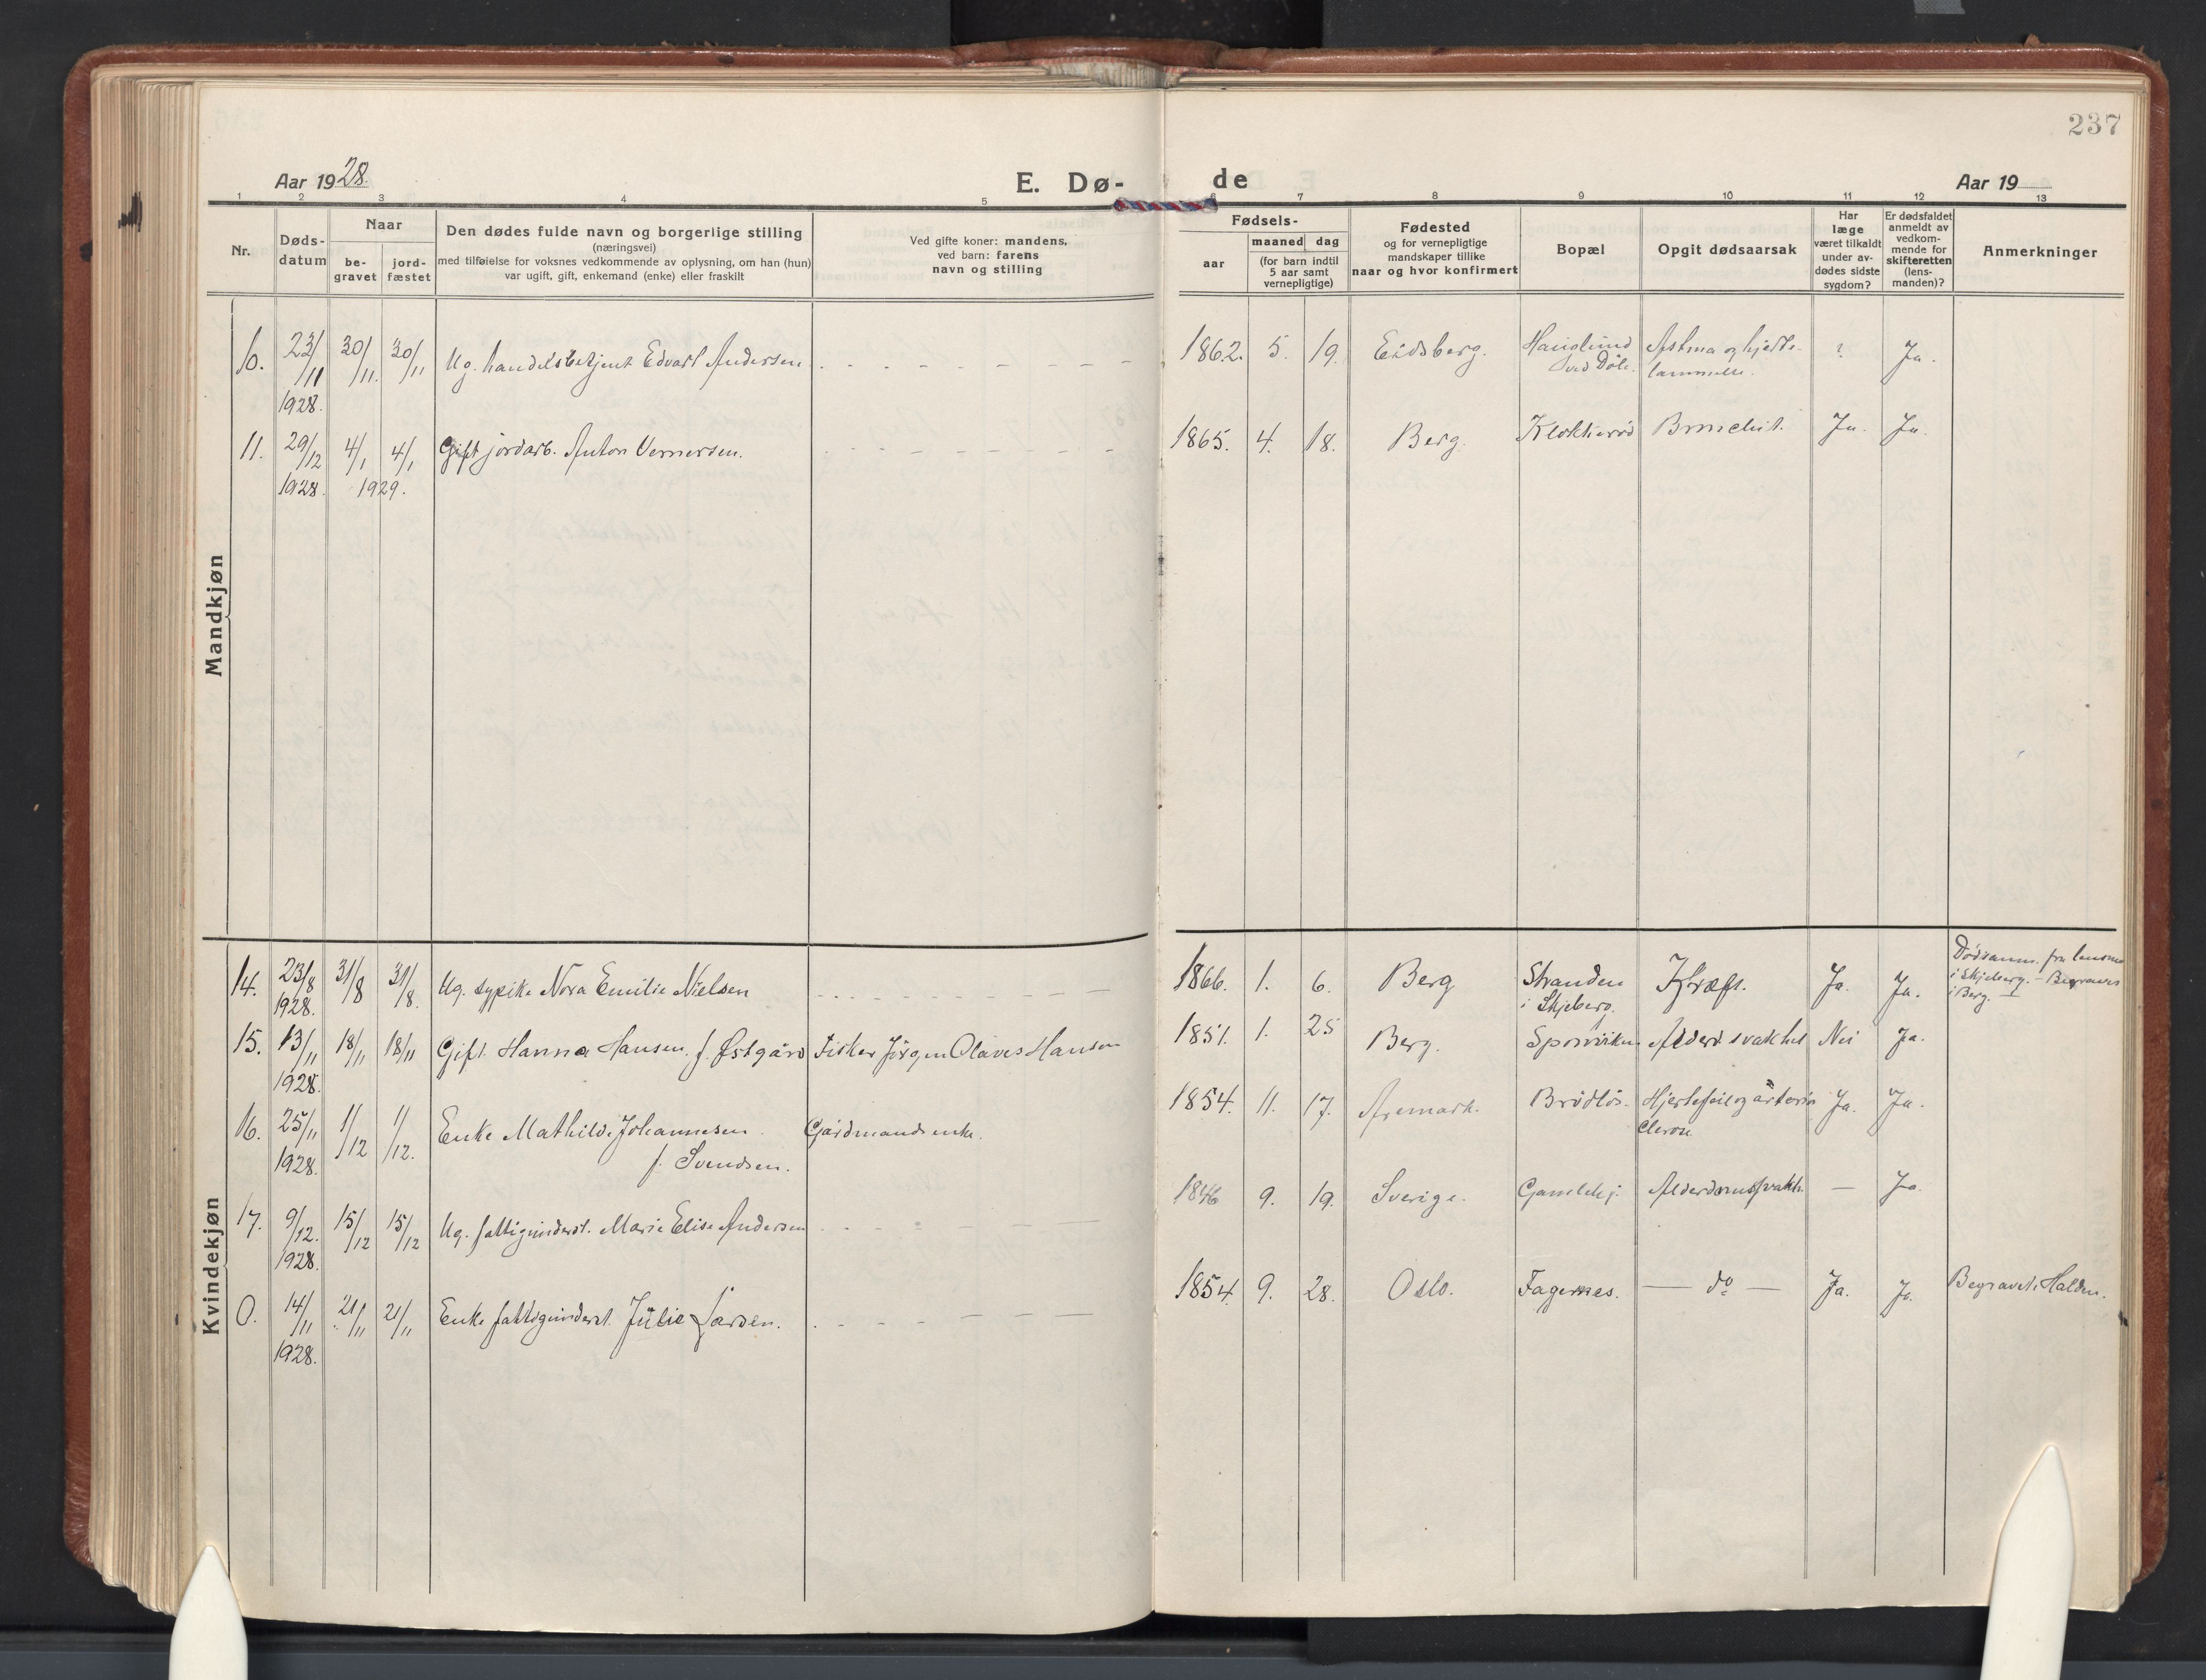 237
Aar 1928.
E. Dø-
de
Aar 19
1 2 3 4 5 6 7 8 9 10 11 12 13
Nr.
Døds-
datum
Naar
be-
gravet
jord-
fæstet
Den dødes fulde navn og borgerlige stilling
(næringsvei)
med tilføielse for voksnes vedkommende av oplysning, om han (hun)
var ugift, gift, enkemand (enke) eller fraskilt
Ved gifte koner: mandens,
ved barn: farens
navn og stilling
Fødsels-
aar
maaned dag
(for barn indtil
5 aar samt
vernepligtige)
Fødested
og for vernepligtige
mandskaper tillike
naar og hvor konfirmert
Bopæl
Opgit dødsaarsak
Har
læge
været tilkaldt
under av-
dødes sidste
sygdom?
Er dødsfaldet
anmeldt av
vedkom-
mende for
skifteretten
(lens-
manden)?
Anmerkninger
Mandkjøn
10. 23/11 30/11. 30/11 Ug. handelsbetjent Edvart Andersen 1862. 5. 19. Eidsberg. Hauglund Astma og hjerte- ? Ja.
1928. ved Døle. lammelse.
11. 29/12 4/1 4/1 Gift jordarb. Anton Vernersen. 1865. 4. 18. Berg. Klokkerød Bronchit. Ja. Ja.
1928. 1929.
Kvindekjøn
14. 23/8 31/8 31/8. Ug. sypike Nora Emilie Nielsen 1866. 1. 6. Berg Stranden Kræft. Ja. Ja. Dødsanm. fra lensm
1928. i Skjeberg. i Skjeberg. - Begraves
i Berg.
15. 13/11 18/11 18/11 Gift. Hanna Hansen. f. Østgård Fisker Jörgen Olaves Hansen 1851. 1. 25 Berg. Sponviken Alderd svakhet Nei Ja.
1928.
16. 25/11 1/12 1/12. Enke Mathilde Johannesen Gårdmands enke. 1854. 11. 17. Aremark. Brödlös. Hjertefeil og arterio Ja. Ja.
1928. f. Svendsen. clerose
17. 9/12. 15/12 15/12 Ug. fattigunderst. Marie Elise Andersen 1846 9. 19. Sverige. Gamlehj. Alderdomssvakh. — Ja
1928.
0. 14/11 21/11 21/11 Enke fattigunderst. Julie Larsen. 1854. 9. 28. Oslo. Fagernes. — do — Ja. Ja. Begravet i Halden.
1928.